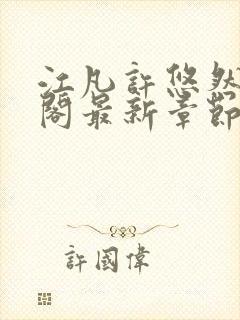 江凡許悠然
閣最新章節
許國偉